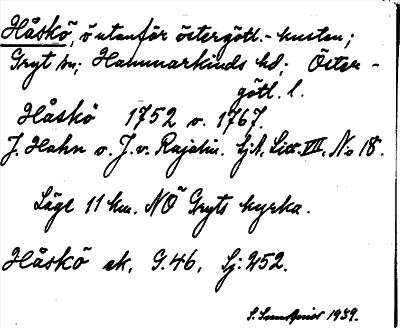 Håskö, ö utanför östergötl.-kusten;
Gryt sn; Hammarkinds hd; Öster-
götl. l.
Håskö 1752 o. 1767.
J. Hahn o. J. v. Rajalin. Sjk. Litt. VII, No 18.
Läge 11 km. NÖ Gryts kyrka.
Håskö ek, G. 46, Sj: 252.
1939.